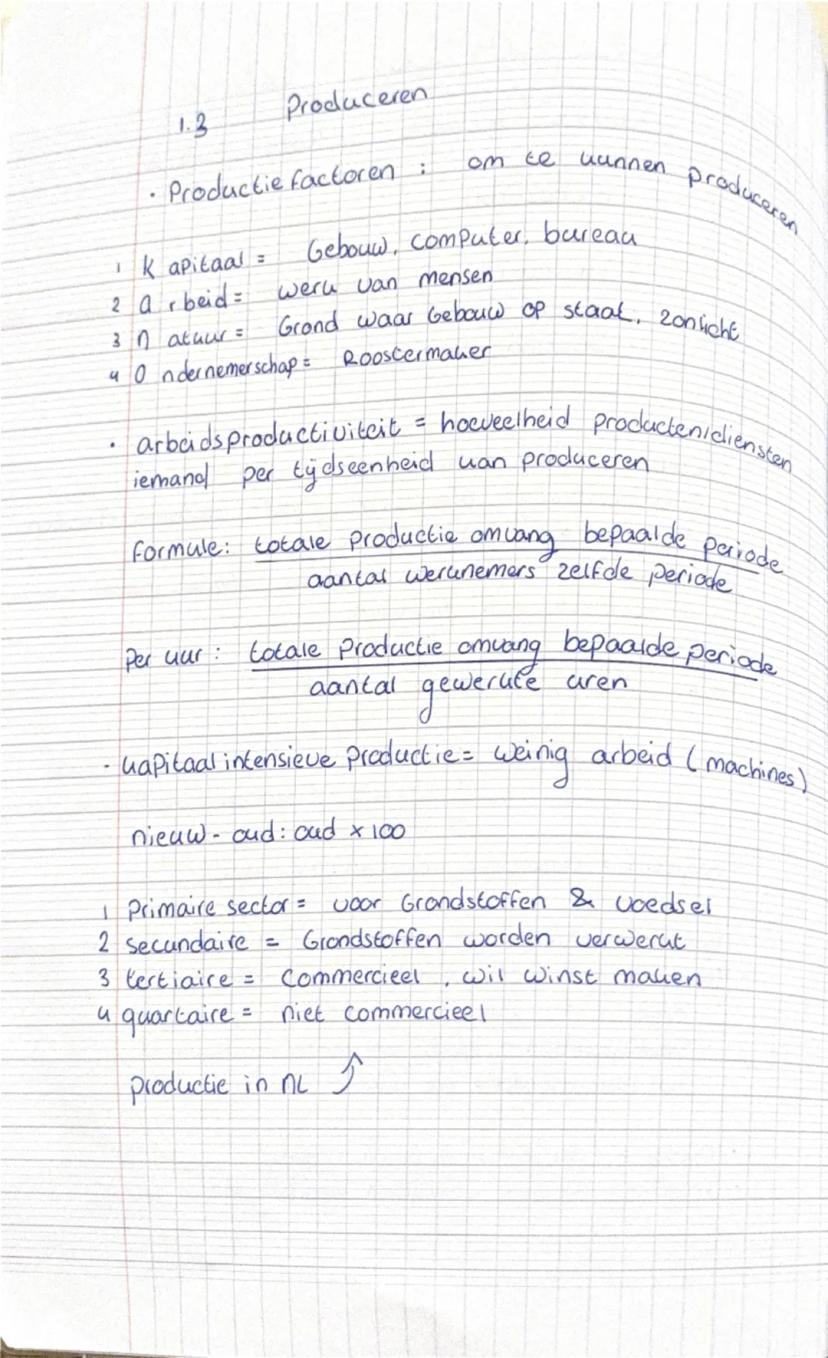 1.3 Produceren
• Productiefactoren : om te kunnen produceren
1 Kapitaal = Gebouw, computer, bureau
2 Arbeid = werk van mensen
3 Natuur = Grond waar Gebouw op staat, zonlicht
4 Ondernemerschap = Roostermaker
• arbeidsproductiviteit = hoeveelheid producten/diensten
iemand per tijdseenheid kan produceren
formule: totale productie omvang bepaalde periode
aantal werknemers zelfde periode
Per uur : totale productie omvang bepaalde periode
aantal gewerkte uren
• kapitaalintensieve productie = weinig arbeid (machines)
nieuw - oud : oud x 100
1 Primaire sector = voor Grondstoffen & voedsel
2 secundaire = Grondstoffen worden verwerkt
3 tertiaire = commercieel, wil winst maken
4 quartaire = niet commercieel
productie in NL ⤴